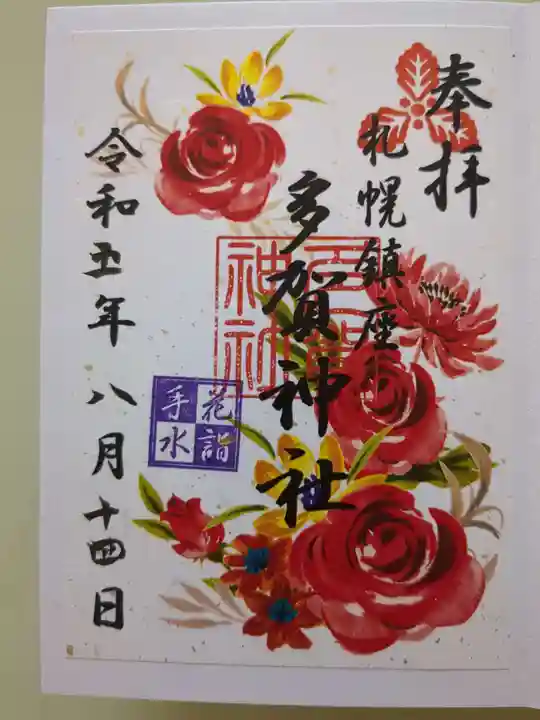 奉拝
札幌鎮座
多賀神社
多賀
神社
花詣
手水
令和五年八月十四日